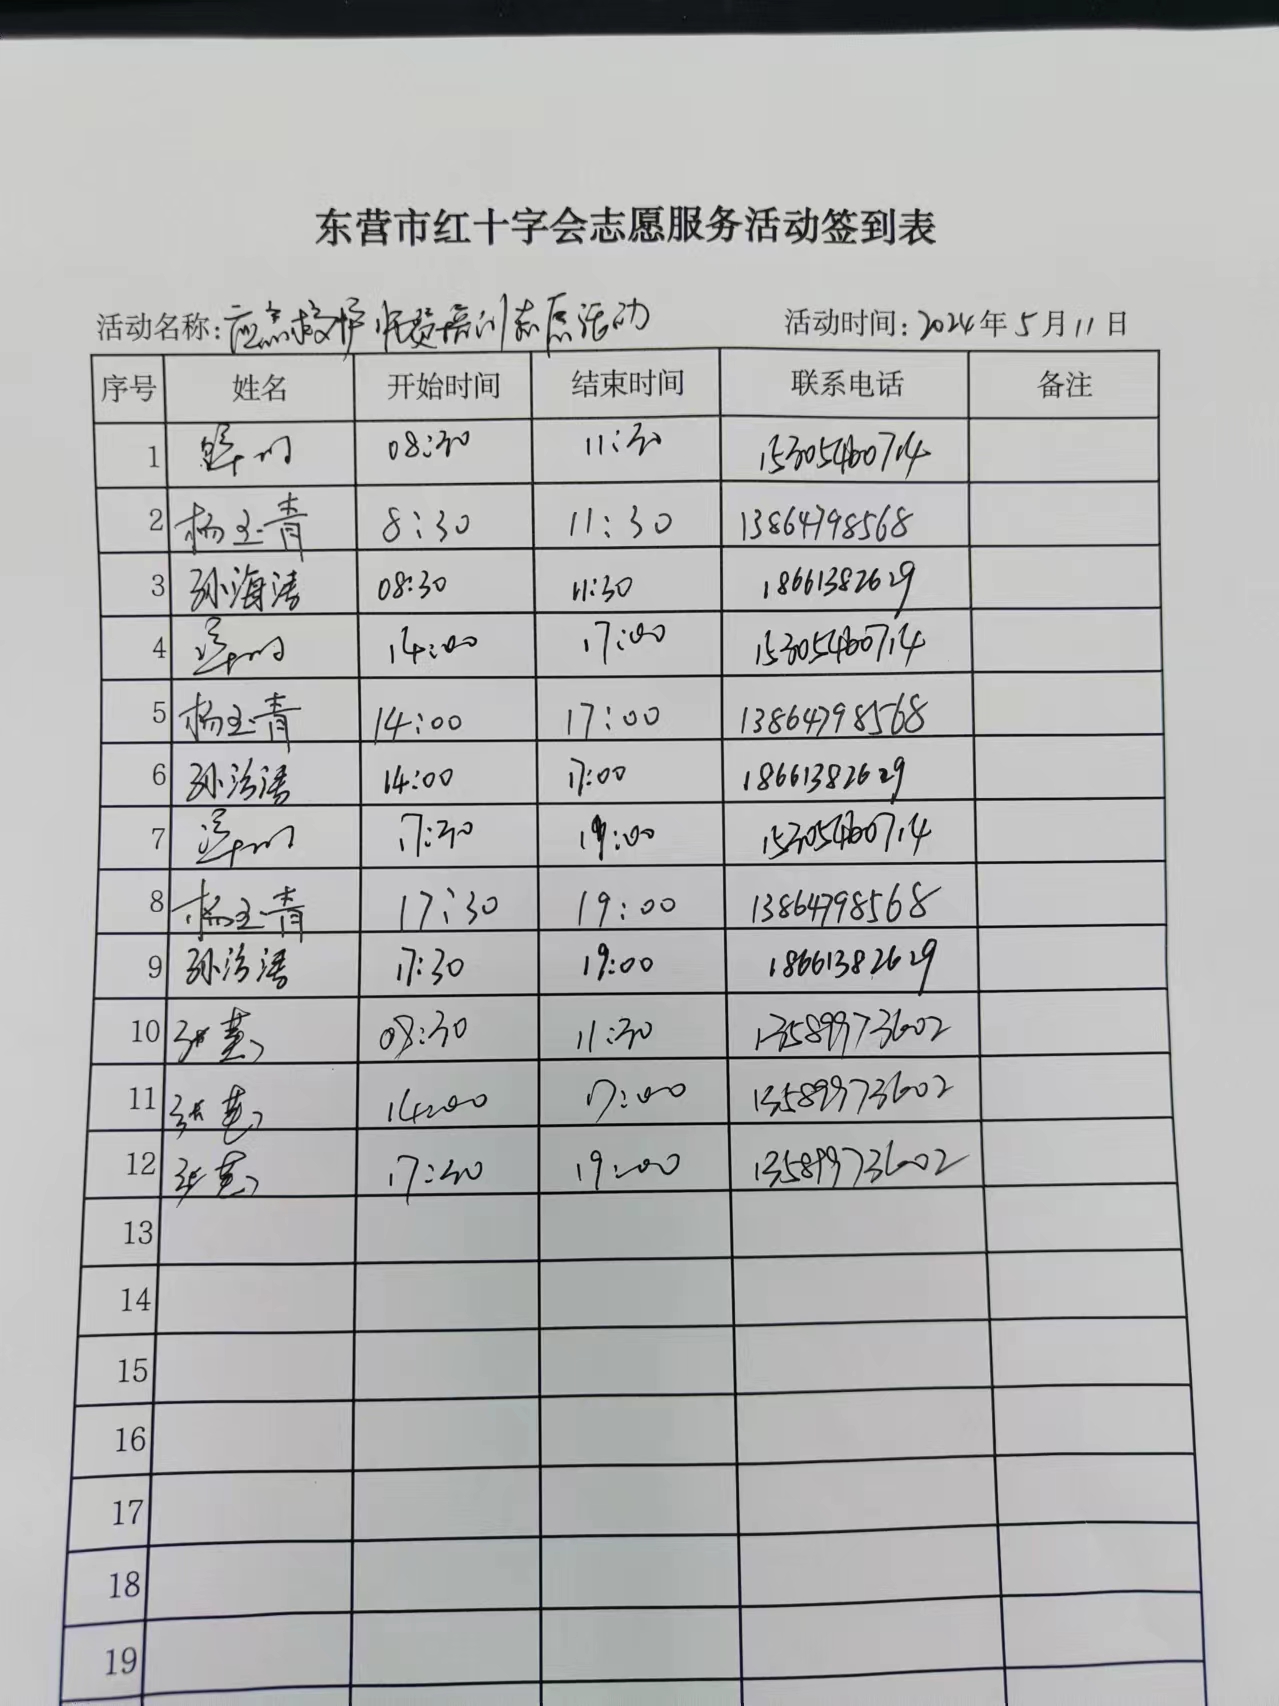 东营市红十字会志愿服务活动签到表
活动名称:应急救护师资培训志愿活动 活动时间:2024年5月11日
序号 姓名 开始时间 结束时间 联系电话 备注
1 08:30 11:30 15305460714
2 杨玉青 8:30 11:30 13864798568
3 孙海清 08:30 11:30 18661382629
4 14:00 17:00 15305460714
5 杨玉青 14:00 17:00 13864798568
6 孙海清 14:00 17:00 18661382629
7 17:30 19:00 15305460714
8 杨玉青 17:30 19:00 13864798568
9 孙海清 17:30 19:00 18661382629
10 张慧 08:30 11:30 13589973602
11 张慧 14:00 17:00 13589973602
12 张慧 17:30 19:00 13589973602
13
14
15
16
17
18
19